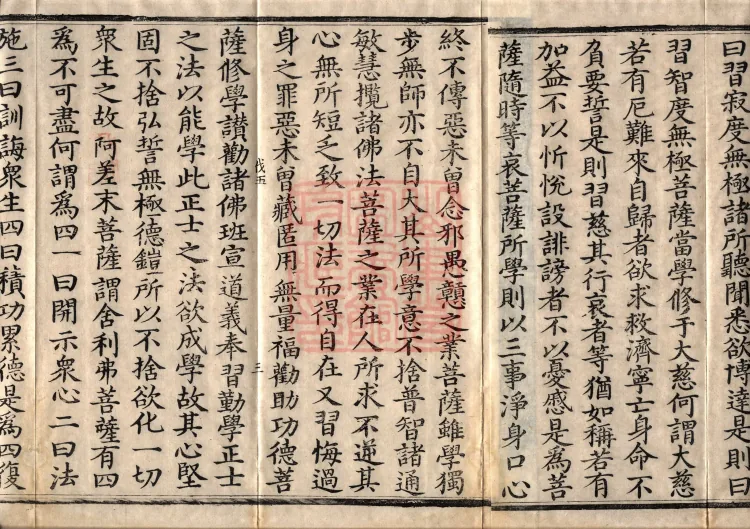 曰習寂度無極諸所聽聞悉欲博達是則曰
習智度無極菩薩當學修于大慈何謂大慈
若有厄難來自歸者欲求救濟寧亡身命不
負要誓是則習慈其行哀者等猶如稱若有
加益不以忻悅設誹謗者不以憂慼是為菩
薩隨時等哀菩薩所學則以三事淨身口心
終不傳惡未曾念邪愚戇之業菩薩雖學獨
步無師亦不自大其所學意不捨普智諸通
敏慧攬諸佛法菩薩之業在人所求不逆其
心無所短乏致一切法而得自在又習悔過
身之罪惡未曾藏匿用無量福勸助功德菩
伐五 三
薩修學讚勸諸佛班宣道義奉習勤學正士
之法以能學此正士之法欲成學故其心堅
固不捨弘誓無極德鎧所以不捨欲化一切
眾生之故阿差末菩薩謂舍利弗菩薩有四
為不可盡何謂為四一曰開示眾心二曰法
施三曰訓誨眾生四曰積功累德是為四復